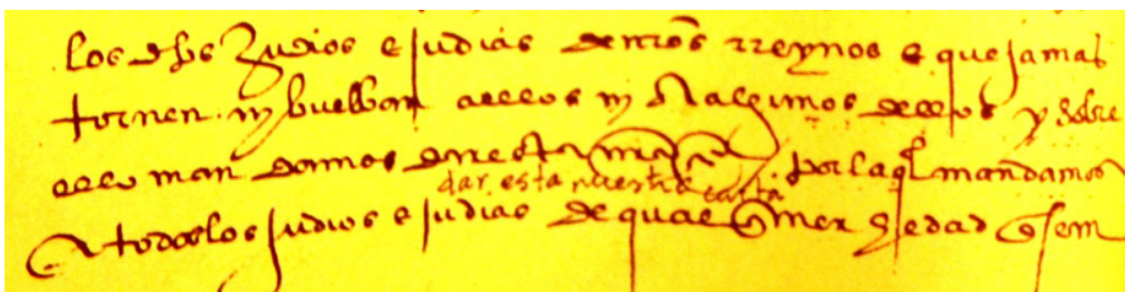 los dhos Judios e judias de nros rreynos e que jamas
tornen ny buelban a ellos ny a algunos dellos y sobre
ello mandamos dar esta nra carta por la ql mandamos
dar esta nuestra carta
a todos los judios e judias de qualquier hedad q sean